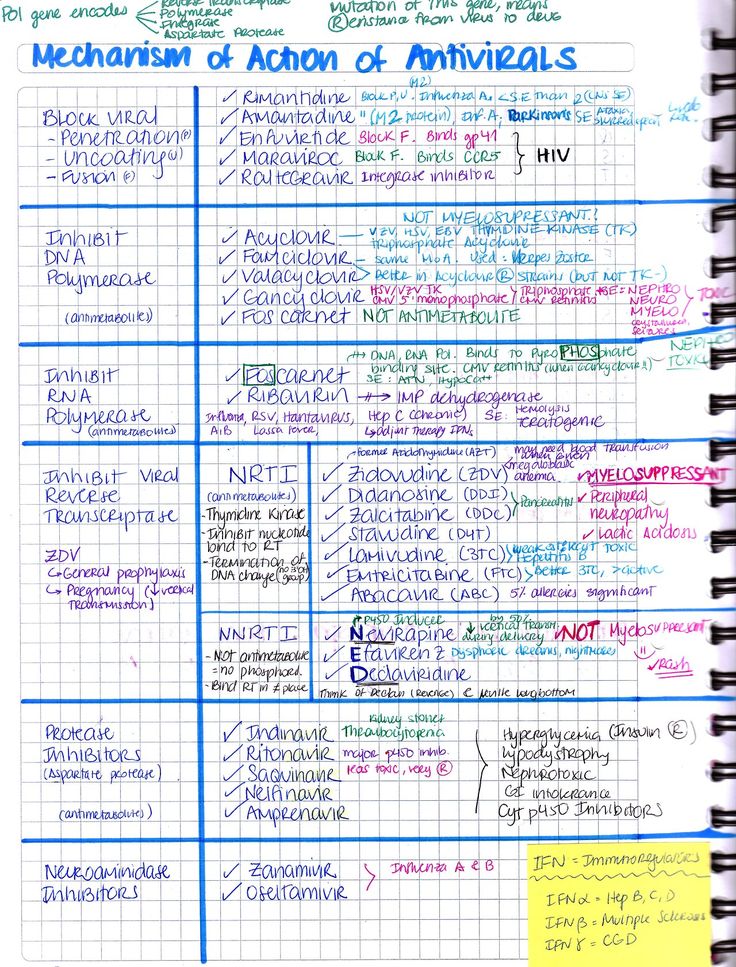 Pol gene encodes
Reverse Transcriptase
Polymerase
Integrase
Aspartate Protease
Mutation of this gene, means
Ⓡesistance from virus to drug
Mechanism of Action of Antivirals
Block Viral
- Penetration (P)
- Uncoating (U)
- Fusion (F)
✓ Rimantidine Block P, U. Influenza A. < SE than 2 (CNS SE)
(M2)
✓ Amantadine " (M2 protein), Inf. A, Parkinsons SE Ataxia, slurred speech
✓ Enfuvirtide Block F. Binds gp41
✓ Maraviroc Block F. Binds CCR5
✓ Raltegravir Integrase inhibitor
HIV
Inhibit
DNA
Polymerase
(antimetabolites)
NOT MYELOSUPRESSANT!!
✓ Acyclovir — VZV, HSV, EBV THYMIDINE KINASE (TK)
triphosphate Acyclovir
✓ Famciclovir — same MoA. Used = Herpes Zoster
✓ Valacyclovir Better in Acyclovir Ⓡ strains (but not TK-)
✓ Gancyclovir HSV/VZV TK
CMV 5' monophosphate
triphosphate
CMV retinitis
SE = NEPHRO
NEURO
MYELO
TOXIC
crystalluria,
seizures
✓ Foscarnet NOT ANTIMETABOLITE
Inhibit
RNA
Polymerase
(antimetabolites)
✓ Foscarnet
DNA, RNA Pol. Binds to Pyro PHOSphate
binding site. CMV Retinitis (when Gancyclovir Ⓡ)
SE: ATN, HypoCa++
NEPHRO
TOXIC
✓ Ribavirin IMP dehydrogenase
Influenza, RSV, Hantavirus,
A&B Lassa fever,
Hep C (chronic)
↳ adjunt therapy IFNα
SE: Hemolysis
Teratogenic
Inhibit Viral
Reverse
Transcriptase
ZDV
↳ General prophylaxis
↳ Pregnancy (↓ vertical
transmission)
NRTI
(antimetabolites)
- Thymidine Kinase
- Inhibit nucleotide
bind to RT
- Termination of
DNA change (no 3'OH
group)
former Azidothymidine (AZT)
may need blood transfusion
when given
✓ Zidovudine (ZDV)
megaloblastic
anemia
✓ MYELOSUPPRESSANT
✓ Didanosine (DDI)
✓ Zalcitabine (DDC)
Pancreatitis
✓ Peripheral
neuropathy
✓ Stavudine (D4T)
✓ Lactic Acidosis
✓ Lamivudine (3TC) weak & least toxic
Hepatitis B
✓ Emtricitabine (FTC) Better 3TC, >active
✓ Abacavir (ABC) 5% allergies significant
NNRTI
- NOT antimetabolite
= no phosphor.
- Bind RT in ≠ place
P450 Inducer
✓ Nevirapine
↓ by 50%
vertical transm.
during delivery
✓ NOT Myelosuppresant
✓ Efavirenz Dysphoric dreams, nightmares
✓ Rash
✓ Declaviridine
Think of Declain (Revenge) & Neville Longbottom
Protease
Inhibitors
(Aspartate protease)
(antimetabolites)
✓ Indinavir Kidney stones
Thrombocytopenia
✓ Ritonavir major p450 inhib.
✓ Saquinavir least toxic, very Ⓡ
✓ Nelfinavir
✓ Amprenavir
Hyperglycemia (Insulin Ⓡ)
Lypodystrophy
Nephrotoxic
GI intolerance
Cyt p450 Inhibitors
Neuroaminidase
Inhibitors
✓ Zanamivir
✓ Oseltamivir
Influenza A & B
IFN = Immunoregulators
IFN α = Hep B, C, D
IFN β = Multiple Sclerosis
IFN γ = CGD